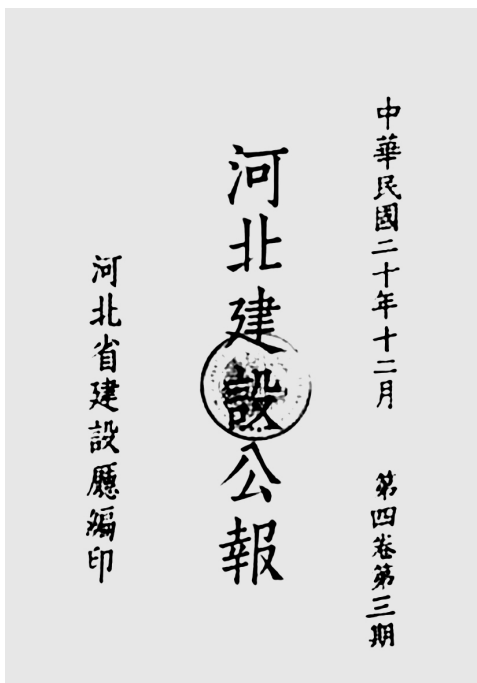 中華民國二十年十二月 第四卷第三期
河北建設公報
河北省建設廳編印